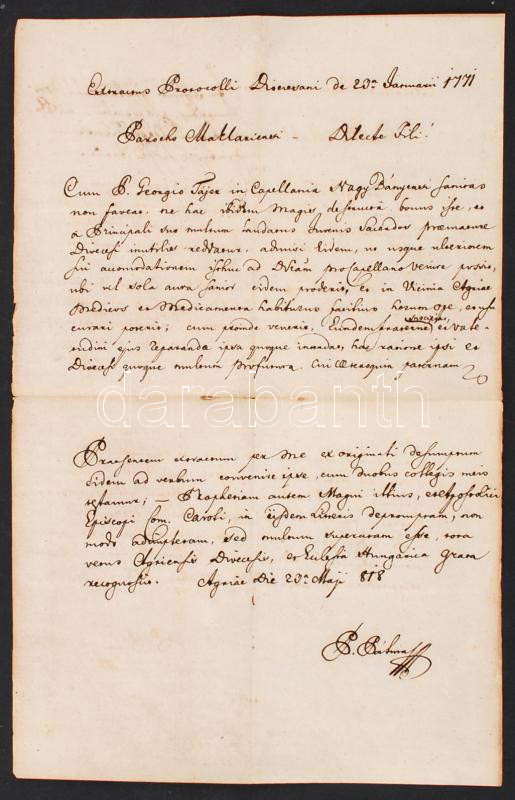 Extractus Protocolli Dioecesani de 23a Januarii 1771
Parocho Maklariensi – Dilecte Fili!
Cum P. Georgio Tajer in Capellania Nagy Bányensi sanitas
non faveat, ne hac ibidem magis destructa, bonus iste, et
a Principali suo multum laudatus Juvenis Sacerdos praemature
Dioecesi inutilis reddatur, admisi eidem, ut usque ulteriorem
sui accomodationem isthuc ad pro Capellano venire possit,
ubi vel sola aura sanior eidem proderit, et in Vicinia Agriae
Medicos et Medicamenta habiturus facilius horum ope,
curari poterit; cum proinde venerit, Eundem fraterne suscipiat, et vale-
tudini ejus reparandae ipsa quoque intendat, hac ratione ipsi et
Dioecesi quoque multum profutura. Cui
20
darabanth
Praesentem extractum per me ex originali desumptum
eidem ad verbum convenire ipse, cum duobus collegis meis
testamur; – autem Magni illius,
Episcopi Com. Caroli, in ejusdem Literis depromptam, non
modo adimpletam, sed multum superatam esse, tota
Agriensis Dioecesis, et Ecclesia Hungarica grata
recognoscit. Agriae Die 23a Maji 818
P.